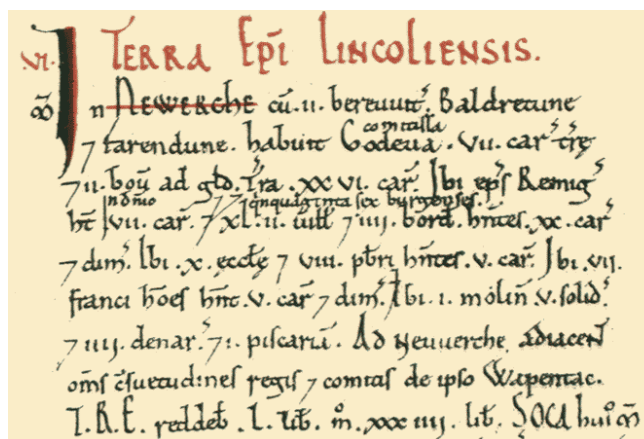 .VI. TERRA Ep̄i LINCOLIENSIS.
ꝏ In NEWERCHE cū .ii. bereuuit᷒. Baldretune
⁊ farendune. habuit Godeua comitissa. VII. car᷒ tr̄ę
⁊ ii. boū ad gld̄. Tr̄a .xx vi. car᷒. Ibi ep̄s Remig᷒
ht̄ in dn̄io .vii. car᷒. ⁊ qnquaginta sex burgenses. ⁊ xl. ii. uill̄ ⁊ iiii. bord̄. hn̄tes. xx. car᷒
⁊ dim̄. Ibi .x. ęccłę ⁊ viii. pb̄ri hn̄tes. v. car᷒. Ibi. vii.
franci hōes hn̄t. v. car᷒ ⁊ dim̄. Ibi. i. molin̄ v. solid᷒.
⁊ iiii. denar᷒. ⁊ i. piscariā. Ad Neuuerche adiacen̄t
om̄s c̄suetudines regis ⁊ comitis de ipso Wapentac.
T. R. E. reddeb̄. L. lib̄. m̊. xxx iiii. lib̄. SOCA hui᷒ ꝏ